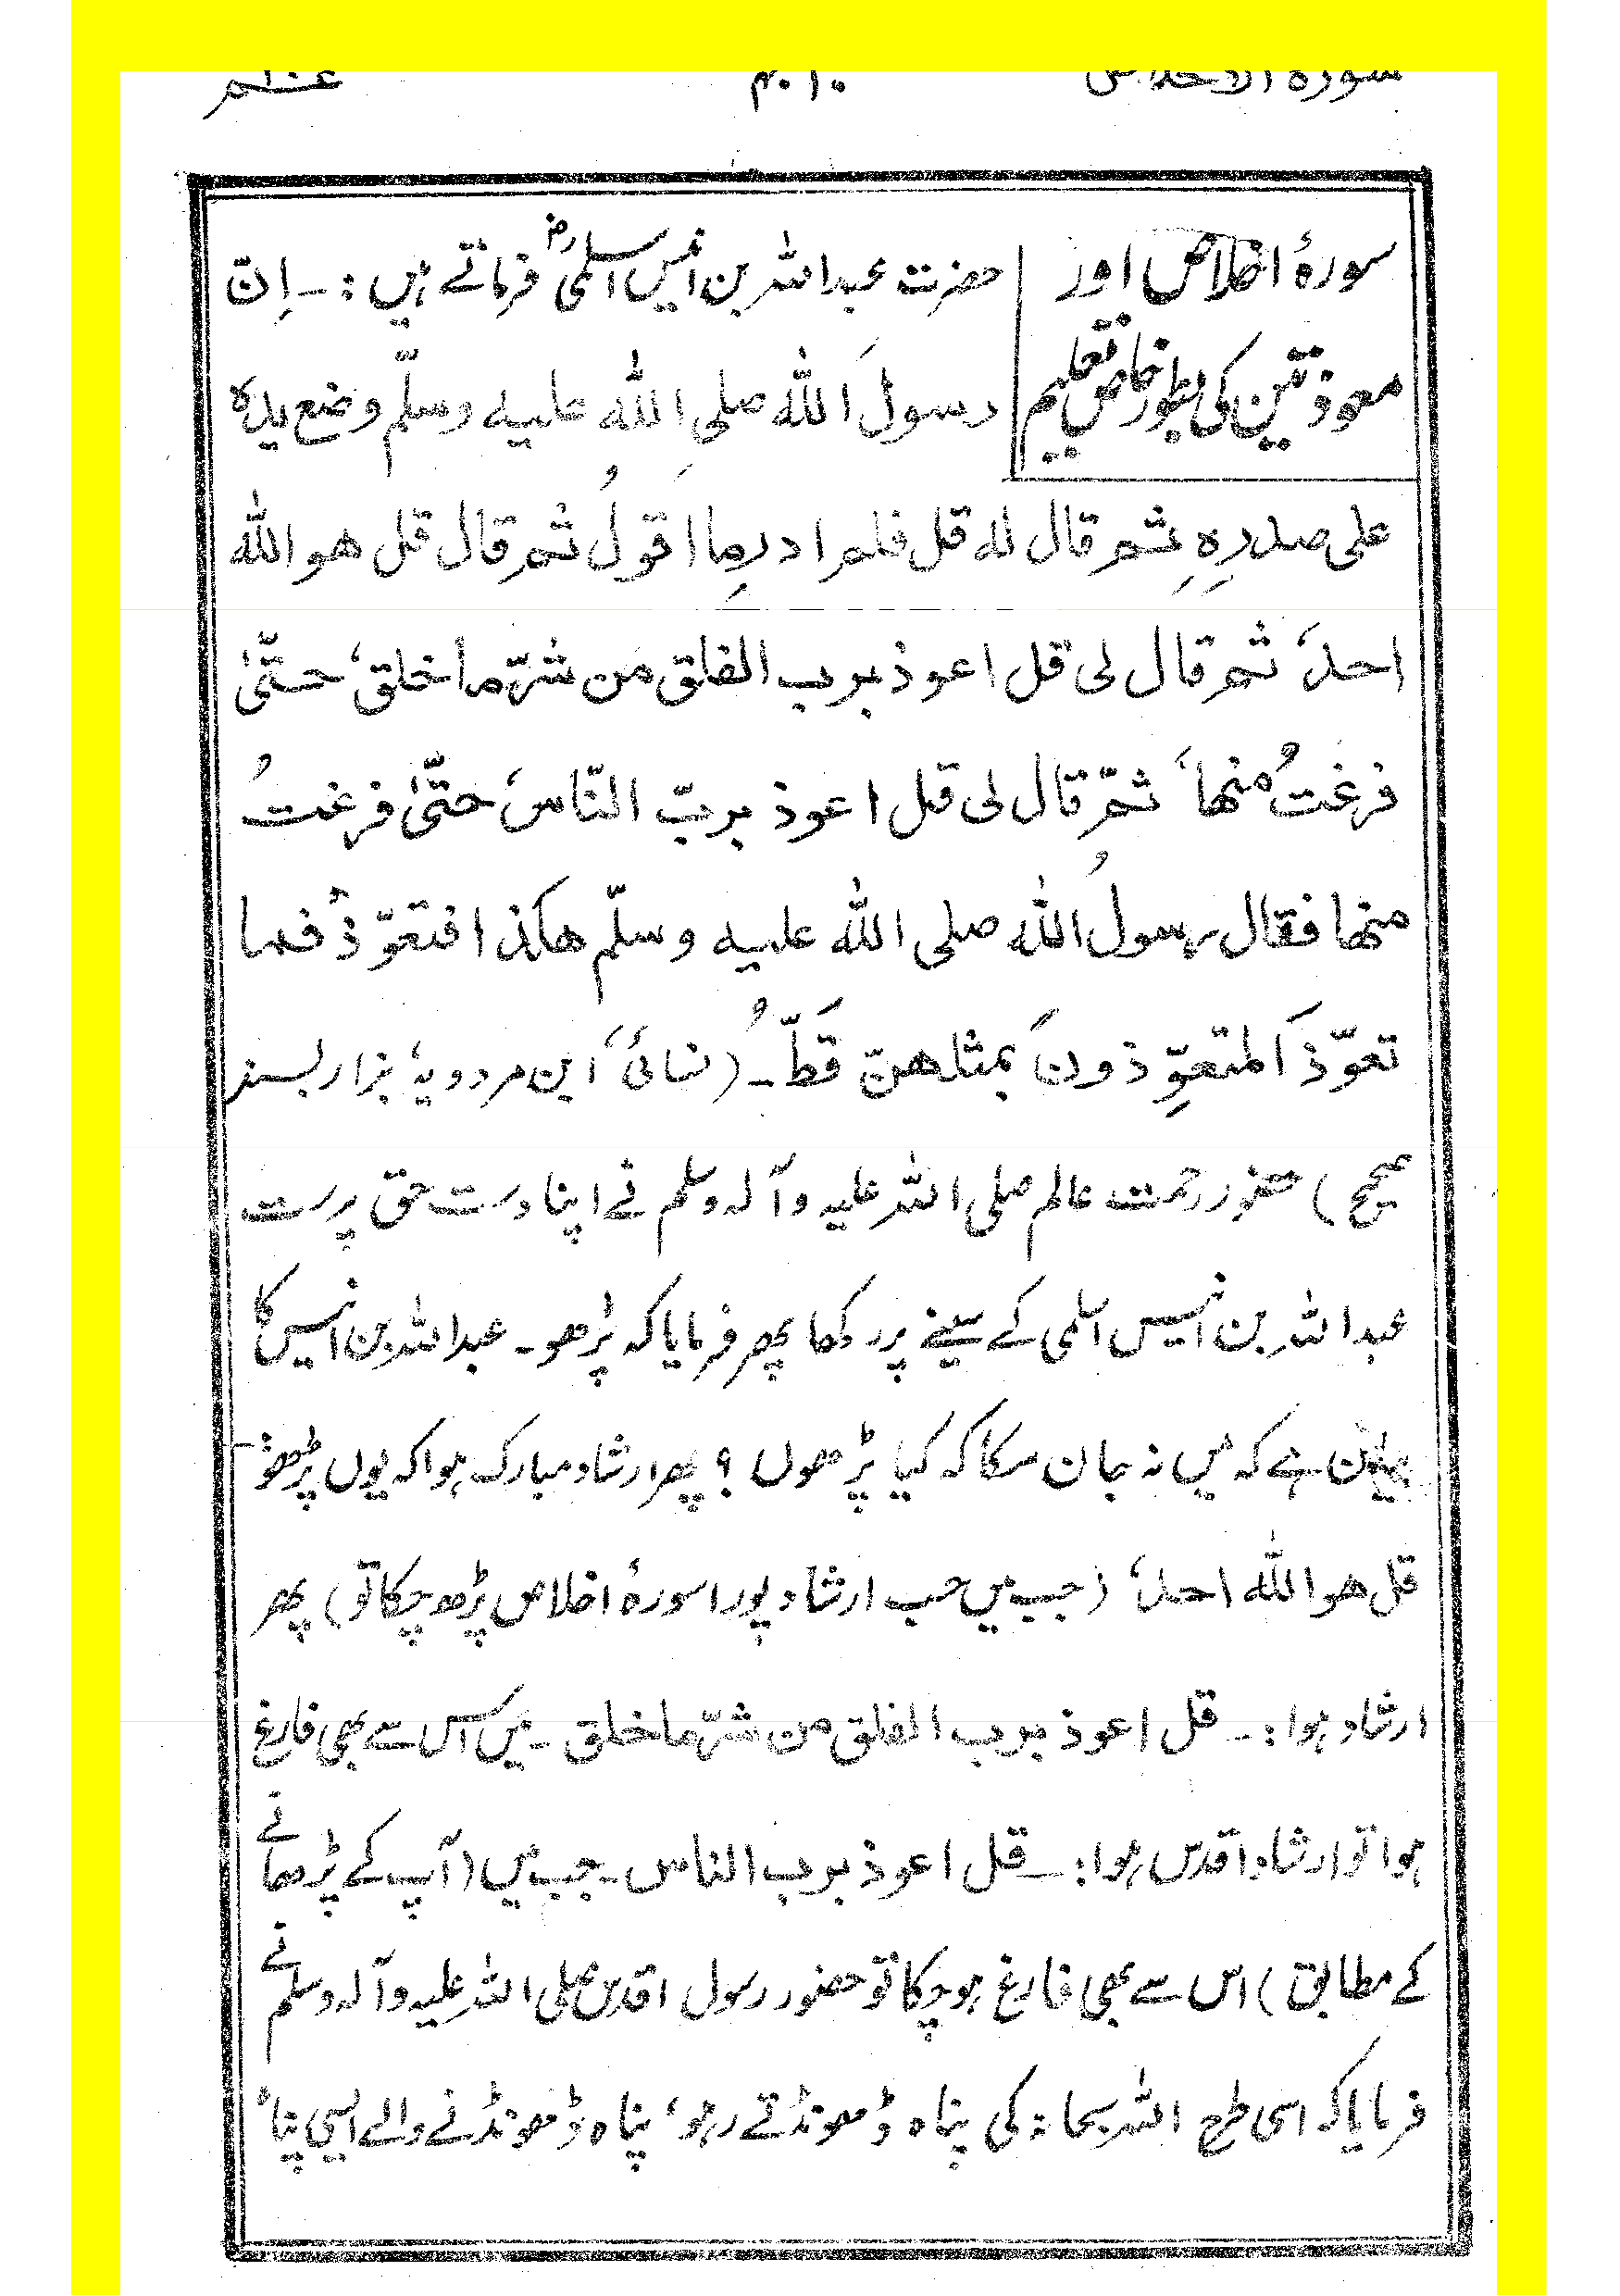 سورة الاخلاص ۴۰۱۰ عـم
سورۂ اخلاص اور
معوذتین کی بطور خاص تعلیم
حضرت عبداللہ بن انیس اسلمیؓ فرماتے ہیں :۔ اِنّ
رسولَ اللّٰہ صلی اللّٰہ علیہ وسلّم وضع یدہ
علی صدرِہِ ثم قال لہ قل فلم ادرِما اقولُ ثم قال قل ھو اللّٰہ
احد، ثم قال لی قل اعوذ برب الفلق من شرّ ما خلق، حتّیٰ
فرغتُ منھا، ثمّ قال لی قل اعوذ بربّ النّاس، حتّیٰ فرغتُ
منھا فقال رسولُ اللّٰہ صلی اللّٰہ علیہ وسلّم ھکذا فتعوّذُ فما
تعوّذَ المتعوِّذونَ بمثلھنّ قَطُّ۔ (نسائی، ابن مردویہ، بزار بسند
صحیح) حضور رحمت عالم صلی اللہ علیہ وآلہ وسلم نے اپنا دست حق پرست
عبداللہ بن انیس اسلمی کے سینے پر رکھا پھر فرمایا کہ پڑھو۔ عبداللہ بن انیس کا
بیان ہے کہ میں نہ جان سکا کہ کیا پڑھوں ؟ پھر ارشاد مبارک ہوا کہ یوں پڑھو،
قل ھو اللّٰہ احد، (جب میں حسب ارشاد پورا سورۂ اخلاص پڑھ چکا تو) پھر
ارشاد ہوا :۔ قل اعوذ برب الفلق من شرّ ما خلق ۔ میں اس سے بھی فارغ
ہوا تو ارشاد اقدس ہوا :۔ قل اعوذ برب الناس ۔ جب میں (آپ کے پڑھانے
کے مطابق) اس سے بھی فارغ ہو چکا تو حضور رسول اقدس صلی اللہ علیہ وآلہ وسلم نے
فرمایا کہ اسی طرح اللہ سبحانہ کی پناہ ڈھونڈتے رہو، پناہ ڈھونڈنے والے ایسی پناہ